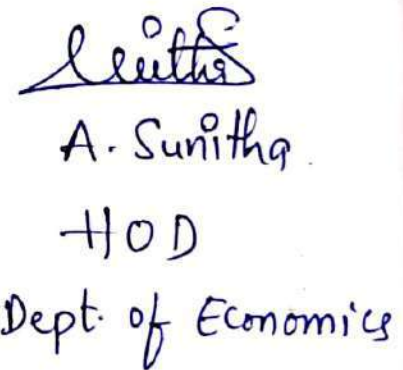 A. Sunitha
HOD
Dept. of Economics